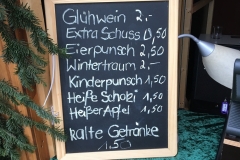 Glühwein 2.-
Extra Schuss 0,50
Eierpunsch 2,50
Wintertraum 2.-
Kinderpunsch 1,50
Heiße Schoki 1,50
Heißer Apfel 1,50
kalte Getränke
1,50